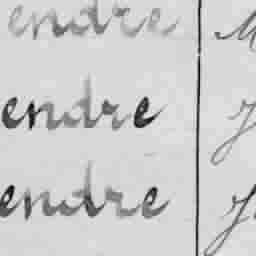 endre M
endre J
endre J